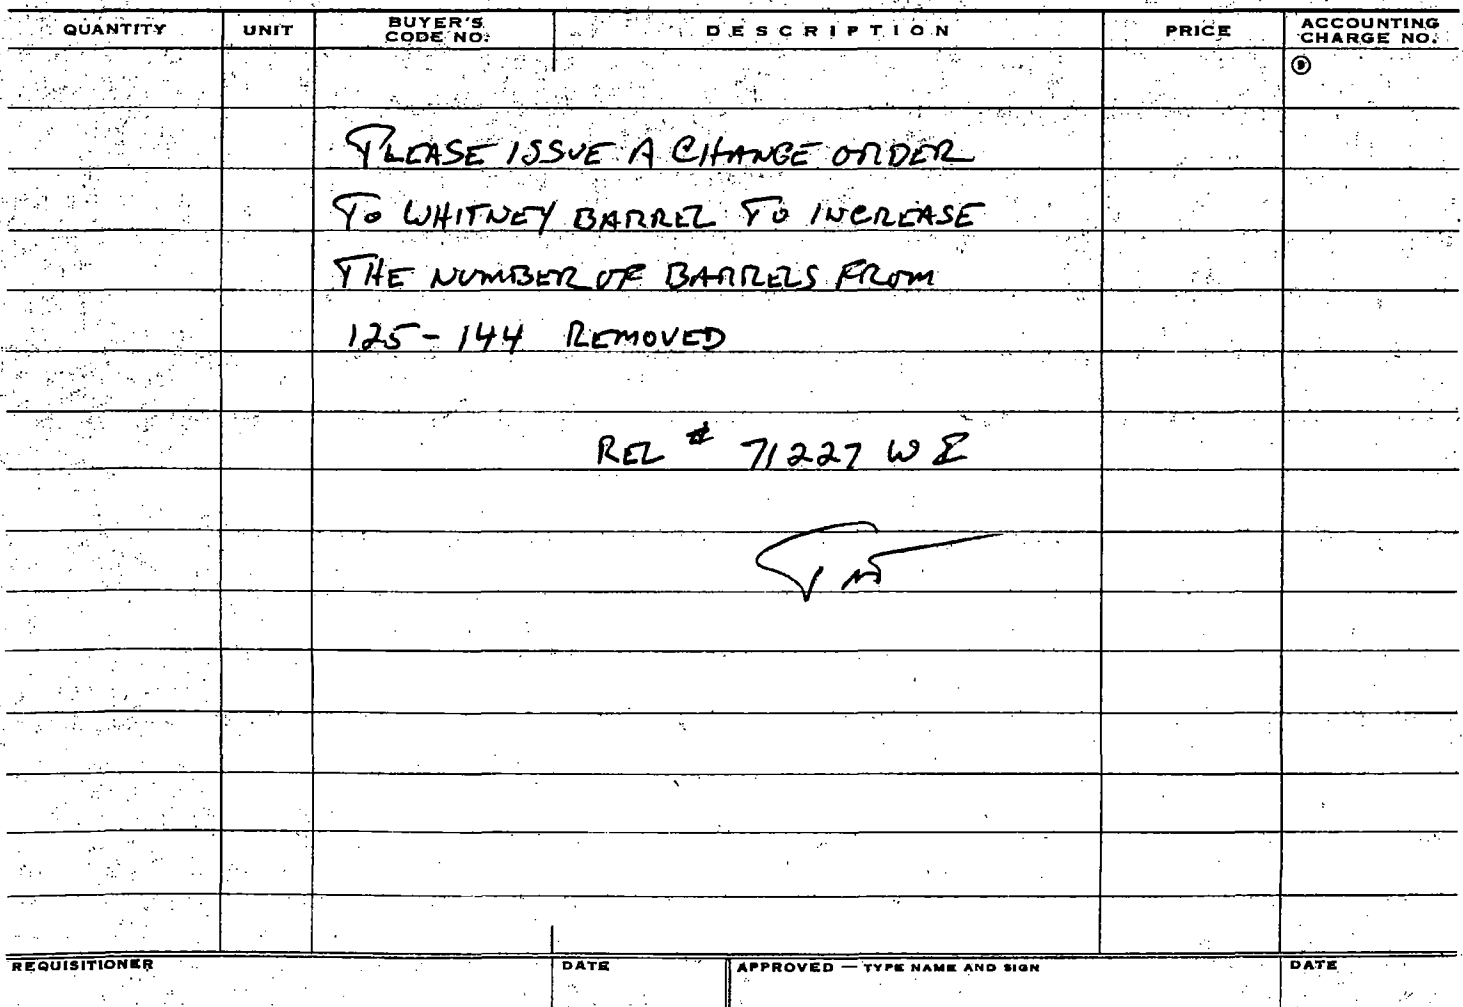 QUANTITY UNIT BUYER'S CODE NO. DESCRIPTION PRICE ACCOUNTING CHARGE NO.
9
PLEASE ISSUE A CHANGE ORDER
TO WHITNEY BARREL TO INCREASE
THE NUMBER OF BARRELS FROM
125-144 REMOVED
REL # 71227 W
REQUISITIONER DATE APPROVED — TYPE NAME AND SIGN DATE